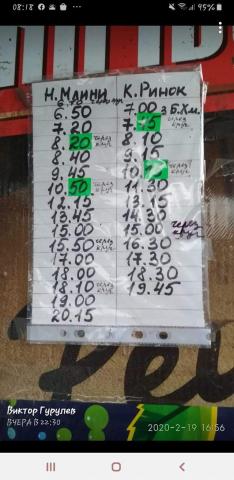 08:18
95%
Н. МАЙНИ
6.50
7.20
8.20 через круг
8.40
9.45
10.50 через круг
12.15
13.45
15.00
15.50 через круг
17.00
18.00
18.10 через круг
19.00
20.15
К. РИНОК
7.00 з Б.Хм.
через круг
8.10
9.15
через круг
11.30
13.15
14.30
15.00 через круг
16.30
17.30
18.30
19.45
Виктор Гурулев
ВЧЕРА В 22:30
2020-2-19 16:56